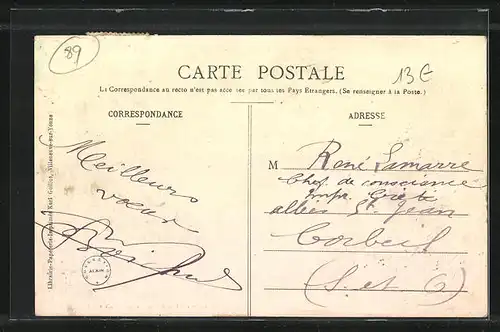 89
13 €
CARTE POSTALE
La Correspondance au recto n'est pas acceptée par tous les Pays Étrangers. (Se renseigner à la Poste.)
CORRESPONDANCE
ADRESSE
Librairie-Papeterie-Imprimerie Villeneuve-sur-Yonne
Meilleurs
vœux
M René Lamarre
Chef de
Imp.
allées St Jean
Corbeil
(S. et O)